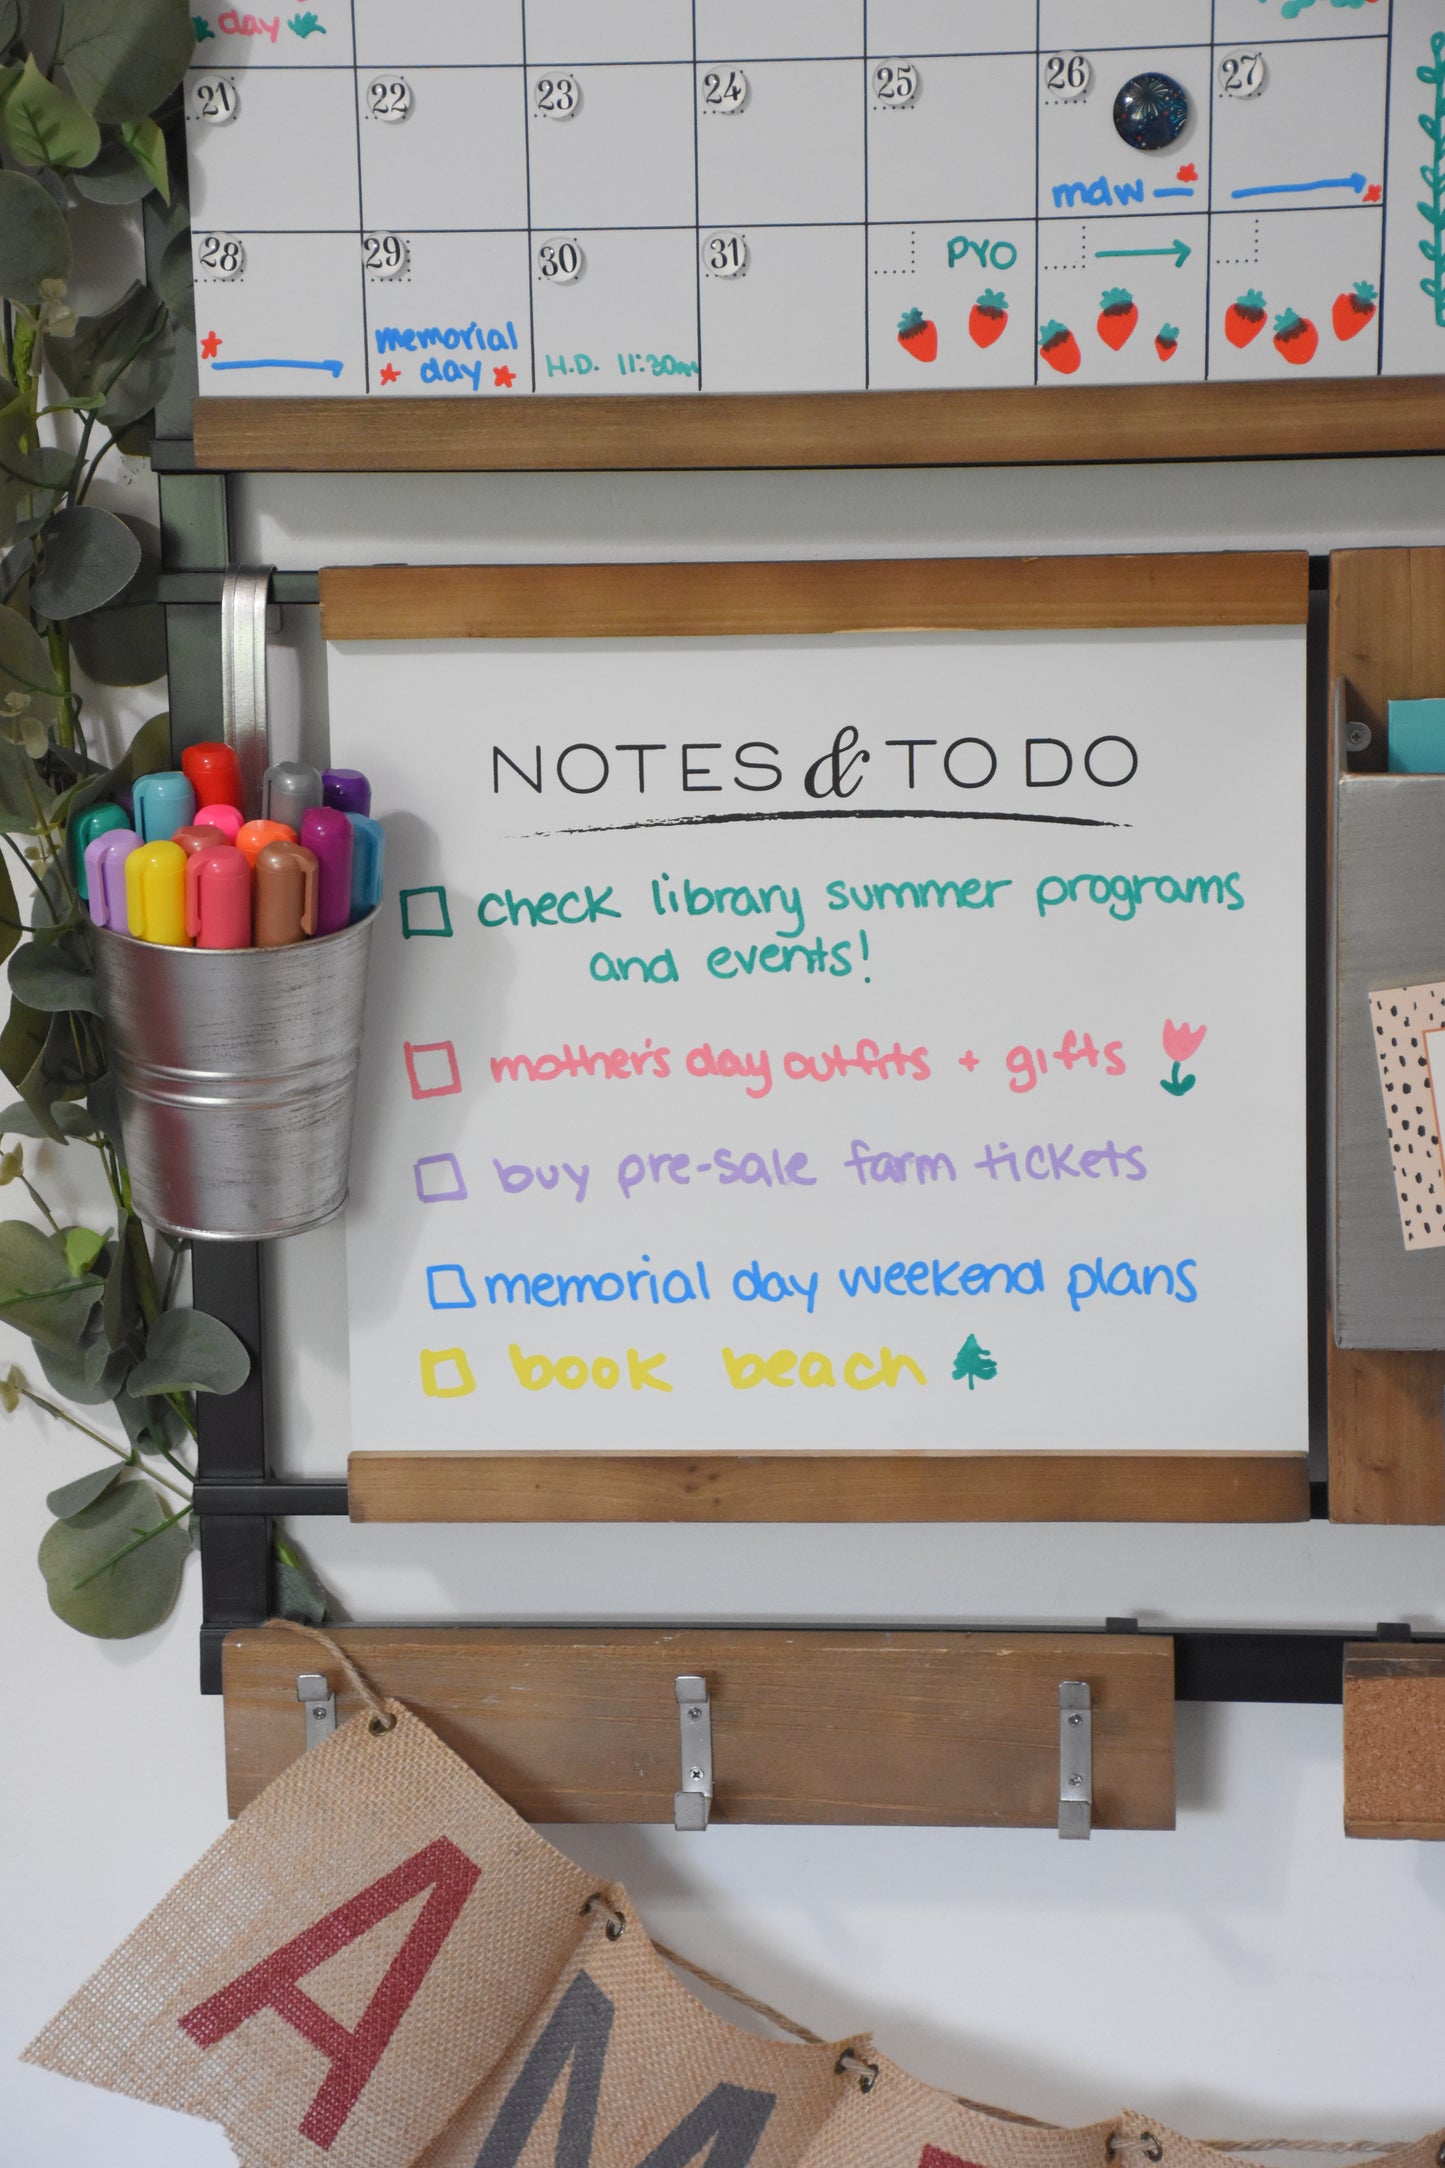 day
21 22 23 24 25 26 27
mdw
28 29 30 31
PYO
memorial
day
H.D. 11:30am
NOTES & TO DO
check library summer programs
and events!
mother's day outfits + gifts
buy pre-sale farm tickets
memorial day weekend plans
book beach
A M